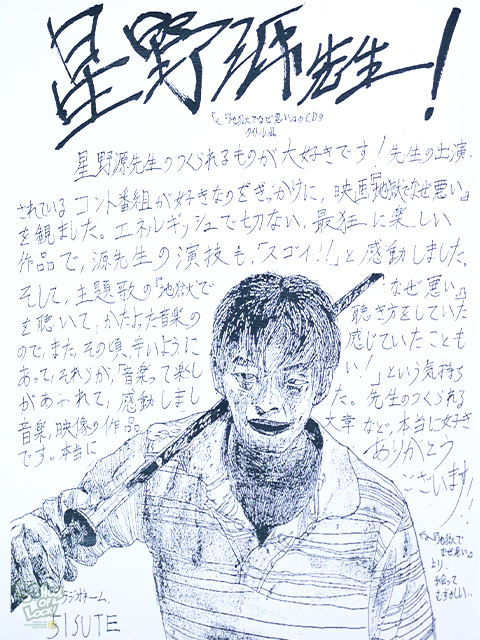 星野源先生!
星野源先生のつくられるものが大好きです!先生の出演
されているコント番組が好きなのをきっかけに、映画『地獄でなぜ悪い』
を観ました。エネルギッシュで切ない、最狂に楽しい
作品で、源先生の演技も、「スゴイ!!」と感動しました。
そして、主題歌の『地獄でなぜ悪い』
を聴いて、かたよった音楽の聴き方をしていた
ので、また、その頃、辛いように感じていたことも
あって、それらが、「音楽って楽しい!」という気持ち
があふれて、感動しました。先生のつくられる
音楽、映像の作品、など、本当に好き
です。本当に
ありがとう
ございます!!
『地獄で
なぜ悪い』
より。
SISUTE